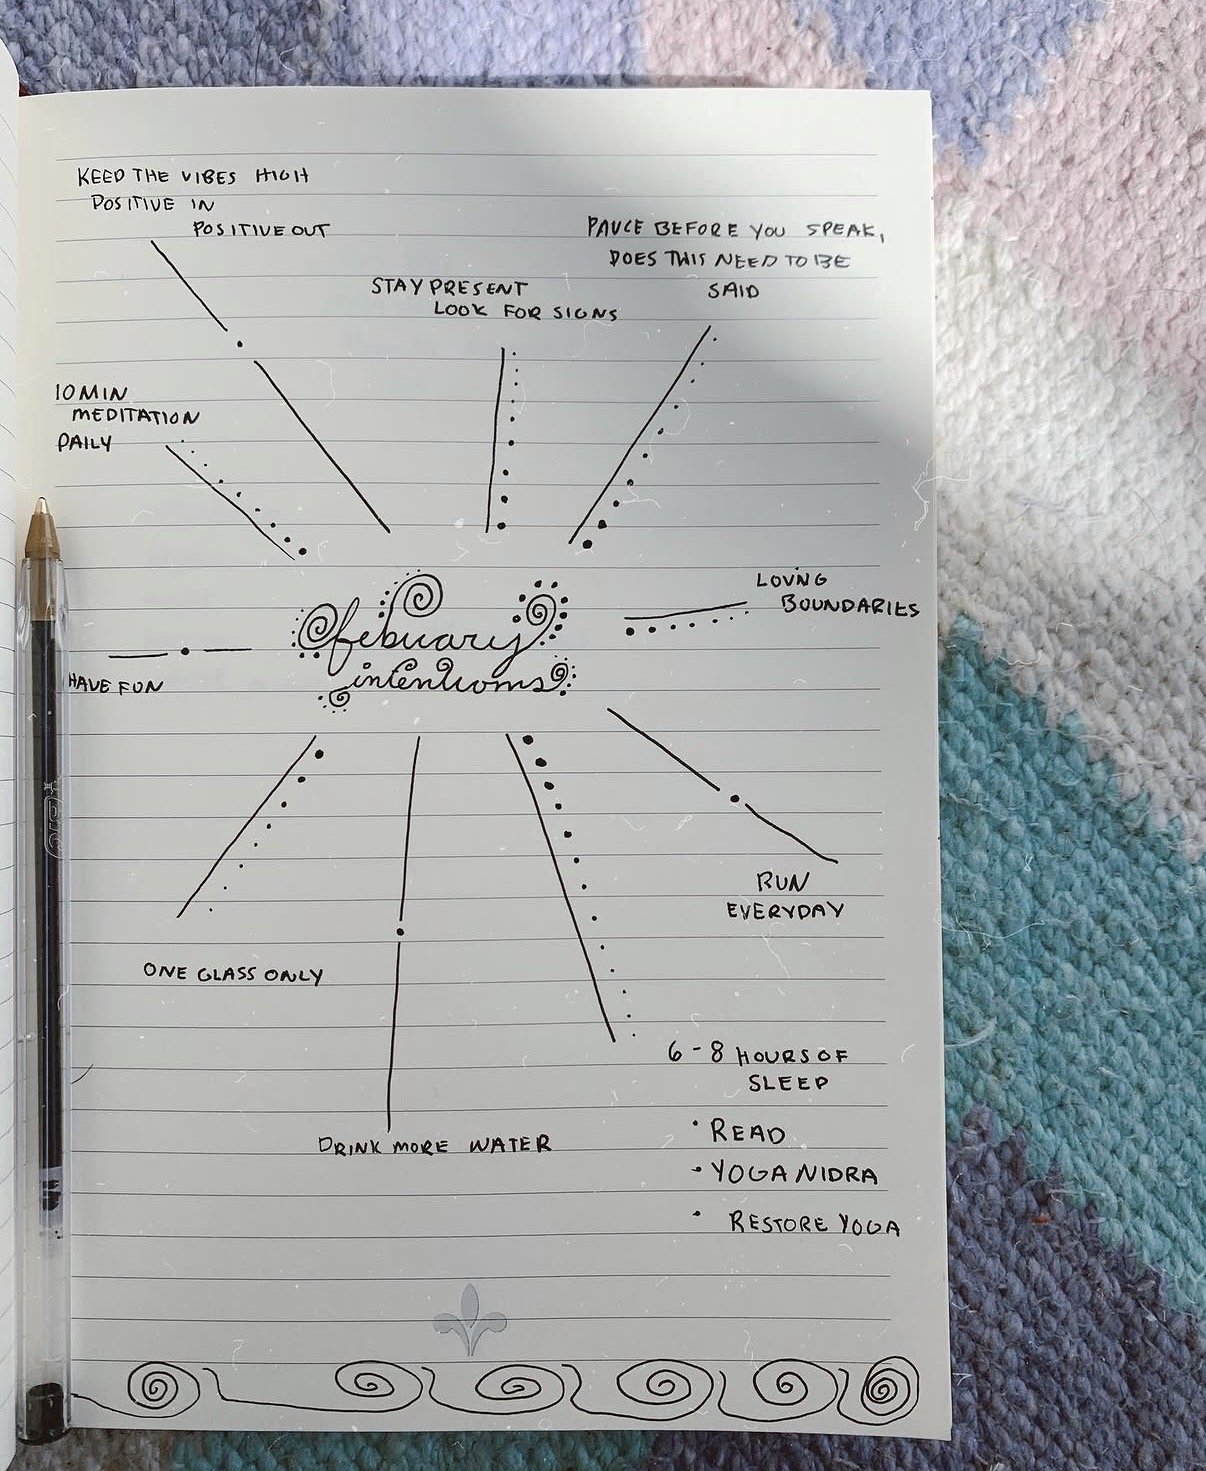 KEEP THE VIBES HIGH
POSITIVE IN
POSITIVE OUT
PAUCE BEFORE YOU SPEAK,
DOES THIS NEED TO BE
SAID
STAY PRESENT
LOOK FOR SIGNS
10 MIN
MEDITATION
DAILY
LOVING
BOUNDARIES
febuary
intentions
HAVE FUN
RUN
EVERYDAY
ONE GLASS ONLY
6-8 HOURS OF
SLEEP
DRINK MORE WATER
• READ
• YOGA NIDRA
• RESTORE YOGA